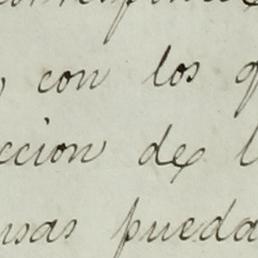 con los
ccion de
nsas pueda